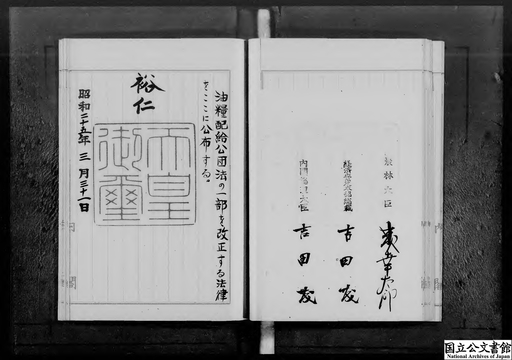 農林大臣 森幸太郎
経済安定本部総裁 吉田茂
内閣総理大臣 吉田茂
油糧配給公団法の一部を改正する法律
をここに公布する。
裕仁
天皇
御璽
昭和二十五年三月三十一日
国立公文書館
National Archives of Japan